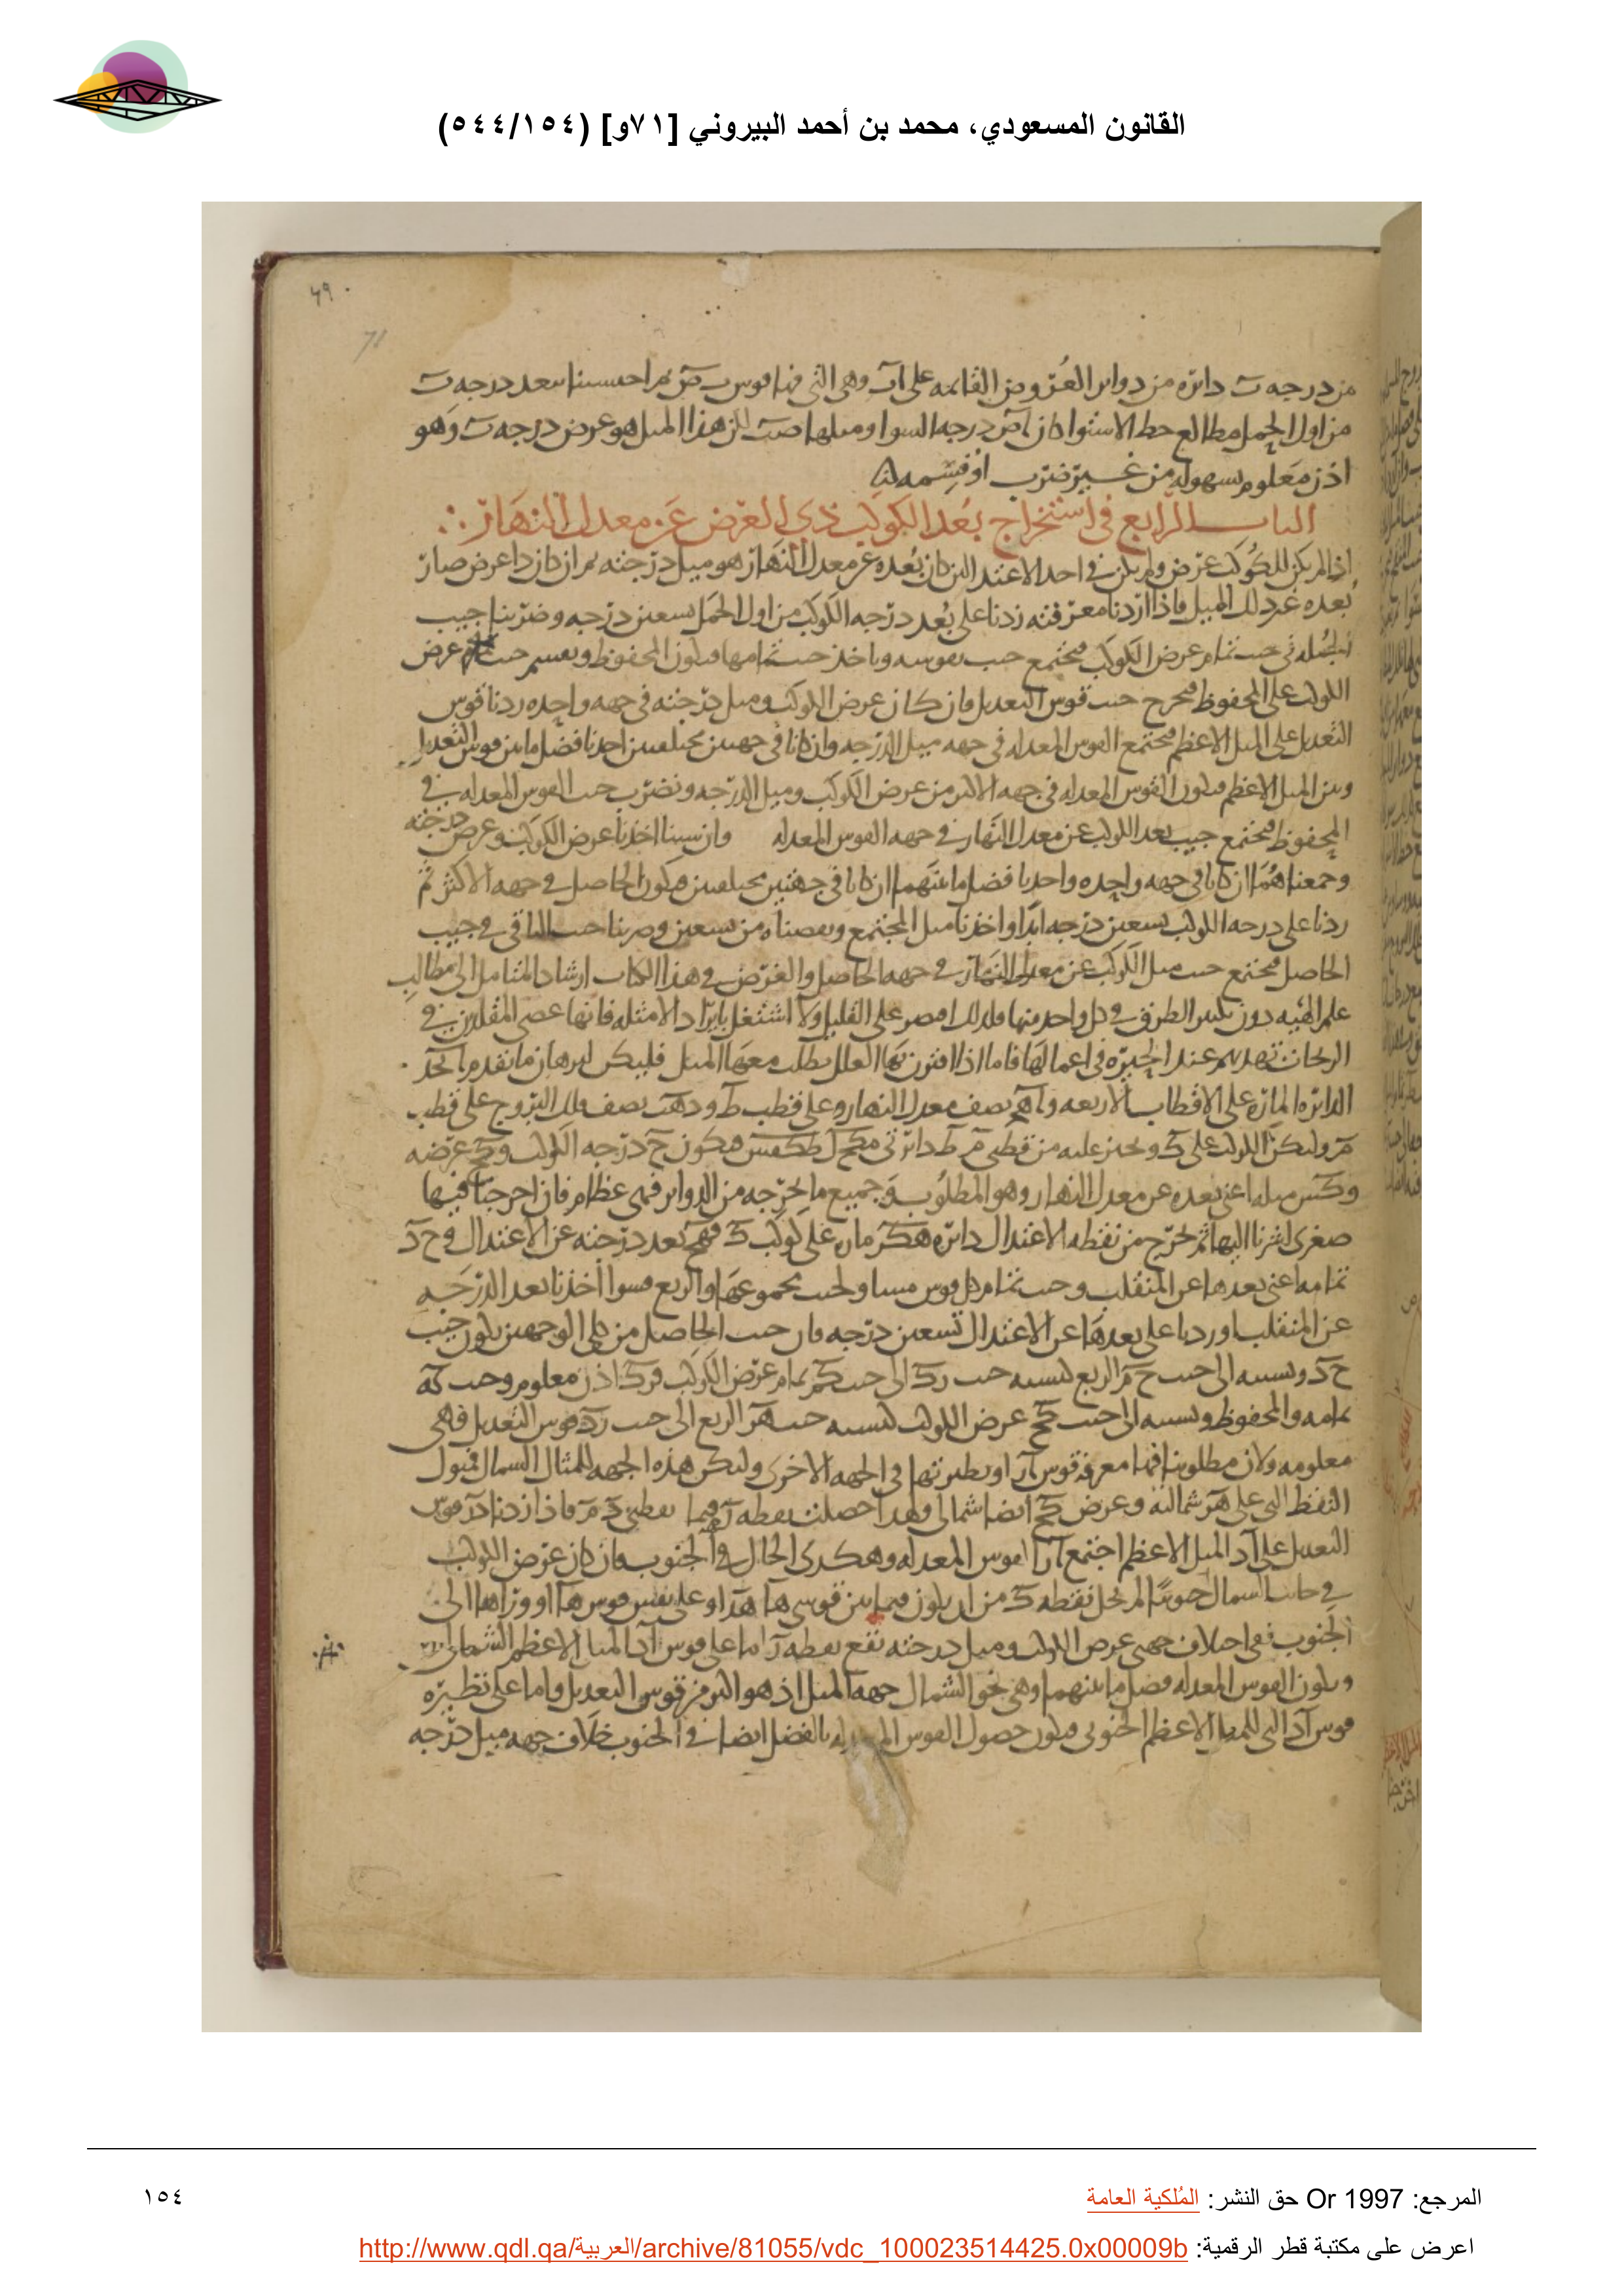 القانون المسعودي، محمد بن أحمد البيروني [٧١و] (٥٤٤/١٥٤)
٦٩
71
من درجه ت دائره من دوائر العروض القائمه على اب وهى التى فيها قوس ت ص ثم احتسبنا ببعد درجه ت
من اول الحمل مطالع خط الاستوا كان اص درجه السوا وميلها صت لكن هذا الميل هو عرض درجه ت وهو
اذن معلوم بسهوله من غير ضرب او قسمه
الباب الرابع فى استخراج بعد الكوكب ذى العرض عن معدل النهار
اذا لم يكن للكوكب عرض ولم يكن فى احد الاعتدالين كان بعده عن معدل النهار هو ميل درجته ثم ان كان ذا عرض صار
بعده غير ذلك الميل فاذا اردنا معرفته زدنا على بعد درجه الكوكب من اول الحمل تسعين درجه وضربنا جيب
الجمله فى جيب تمام عرض الكوكب فيجتمع جيب نقوسه وناخذ جيب تمامها فيكون المحفوظ ونقسم جيب عرض
الكوكب على المحفوظ فيخرج جيب قوس التعديل فان كان عرض الكوكب وميل درجته فى جهه واحده زدنا قوس
التعديل على الميل الاعظم فيجتمع القوس المعدله فى جهه ميل الدرجه وان كانا فى جهتين مختلفتين اخذنا فضل ما بين قوس التعديل
وبين الميل الاعظم فيكون القوس المعدله فى جهه الاكثر من عرض الكوكب وميل الدرجه ونضرب جيب القوس المعدله فى
المحفوظ فيجتمع جيب بعد الكوكب عن معدل النهار فى جهه القوس المعدله وان شينا اخذنا عرض الكوكب وعرض درجته
وجمعناهما ان كانا فى جهه واحده واخذنا فضل ما بينهما ان كانا فى جهتين مختلفتين فيكون الحاصل فى جهه الاكثر ثم
زدنا على درجه الكوكب تسعين درجه ابدا واخذنا ميل المجتمع ونقصناه من تسعين وضربنا جيب الباقى فى جيب
الحاصل فيجتمع جيب ميل الكوكب عن معدل النهار فى جهه الحاصل والغرض فى هذا الكتاب ارشاد المتامل الى مطالب
علم الهيه دون تكثير الطرق فى كل واحد منها فلذلك اقتصر على القليل ولا اشتغل بايراد الامثله فانها عصى المقلدين فى
تهديهم عند الحيره فى اعمالها فاما اذا اقترن بها العلل بطلت معها المثل فليكن لبرهان ما تقدم
الدائره الماره على الاقطاب الاربعه و نصف معدل النهار وعلى قطب ط و نصف فلك البروج على قطب
م وليكن الكوكب على ك ونجيز عليه من قطبى م ط دائرتى فيكون ح درجه الكوكب و كح عرضه
و ميله اعنى بعده عن معدل النهار وهو المطلوب وجميع ما نخرجه من الدوائر فهى عظام فان اخرجنا فيها
صغرى اشرنا اليها ثم نخرج من نقطه الاعتدال دائره على كوكب ك بعد درجته عن الاعتدال و ح د
تمامه اعنى بعدها عن المنقلب وجيب تمام كل قوس مساو لجيب مجموعها والربع فسوا اخذنا بعد الدرجه
عن المنقلب او زدنا على بعدها عن الاعتدال تسعين درجه فان جيب الحاصل من كلى الوجهين يكون جيب
ح د ونسبته الى جيب ح م الربع كنسبه جيب رك الى جيب كم تمام عرض الكوكب فرك اذن معلوم وجيب
تمامه والمحفوظ ونسبته الى جيب كح عرض الكوكب كنسبه جيب هر الربع الى جيب رد قوس التعديل فهى
معلومه ولان مطلوبنا فيها معرفه قوس ار او نظيرتها فى الجهه الاخرى وليكن هذه الجهه للمثال الشمال فنقول
النقط التى على هر شماليه وعرض كح ايضا شمالى وهذا حصلت نقطه ر فيما نقطتى د م فاذا زدنا در قوس
التعديل على اد الميل الاعظم اجتمع ار القوس المعدله وهكذى الحال فى الجنوب فان كان عرض الكوكب
فى جانب الشمال جنوبيا لم يخل نقطه ك من ان يكون فيما بين قوسى او على نفس قوس ها او وراها الى
الجنوب ففى اختلاف جهتى عرض الكوكب وميل درجته تقع نقطه ر اما على قوس اد الميل الاعظم الشمالى
ويكون القوس المعدله فضل ما بينهما وهى نحو الشمال جهه الميل اذ هو اكثر من قوس التعديل واما على نظيره
قوس اد التى للميل الاعظم الجنوبى فيكون حصول القوس المعدله بالفضل ايضا فى الجنوب خلاف جهه ميل درجه
المرجع: Or 1997 حق النشر: المُلكية العامة
١٥٤
اعرض على مكتبة قطر الرقمية: http://www.qdl.qa/العربية/archive/81055/vdc_100023514425.0x00009b